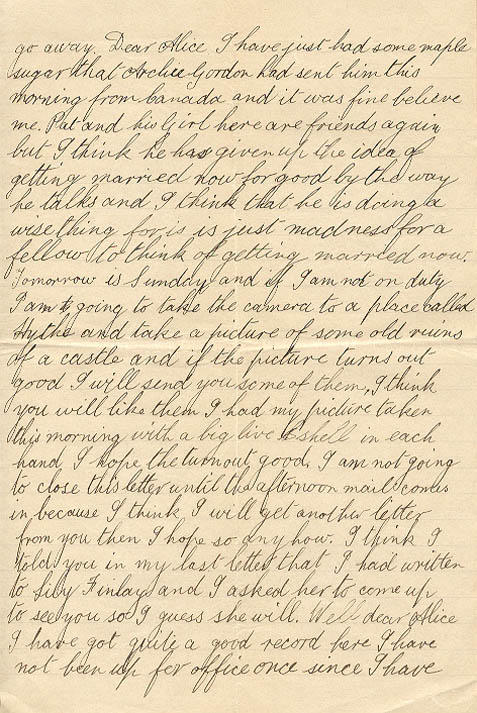 go away. Dear Alice I have just had some maple
sugar that Archie Gordon had sent him this
morning from Canada and it was fine believe
me. Pat and his Girl here are friends again
but I think he has given up the idea of
getting married now for good by the way
he talks and I think that he is doing a
wise thing for is is just madness for a
fellow to think of getting married now.
Tomorrow is Sunday and if I am not on duty
I am going to take the camera to a place called
Hythe and take a picture of some old ruins
of a castle and if the picture turns out
good I will send you some of them, I think
you will like them I had my picture taken
this morning with a big live shell in each
hand, I hope the turnout good, I am not going
to close this letter until the afternoon mail comes
in because I think I will get another letter
from you then I hope so anyhow. I think I
told you in my last letter that I had written
to Lily Finlay and I asked her to come up
to see you so I guess she will. Well dear Alice
I have got quite a good record here I have
not been up for office once since I have